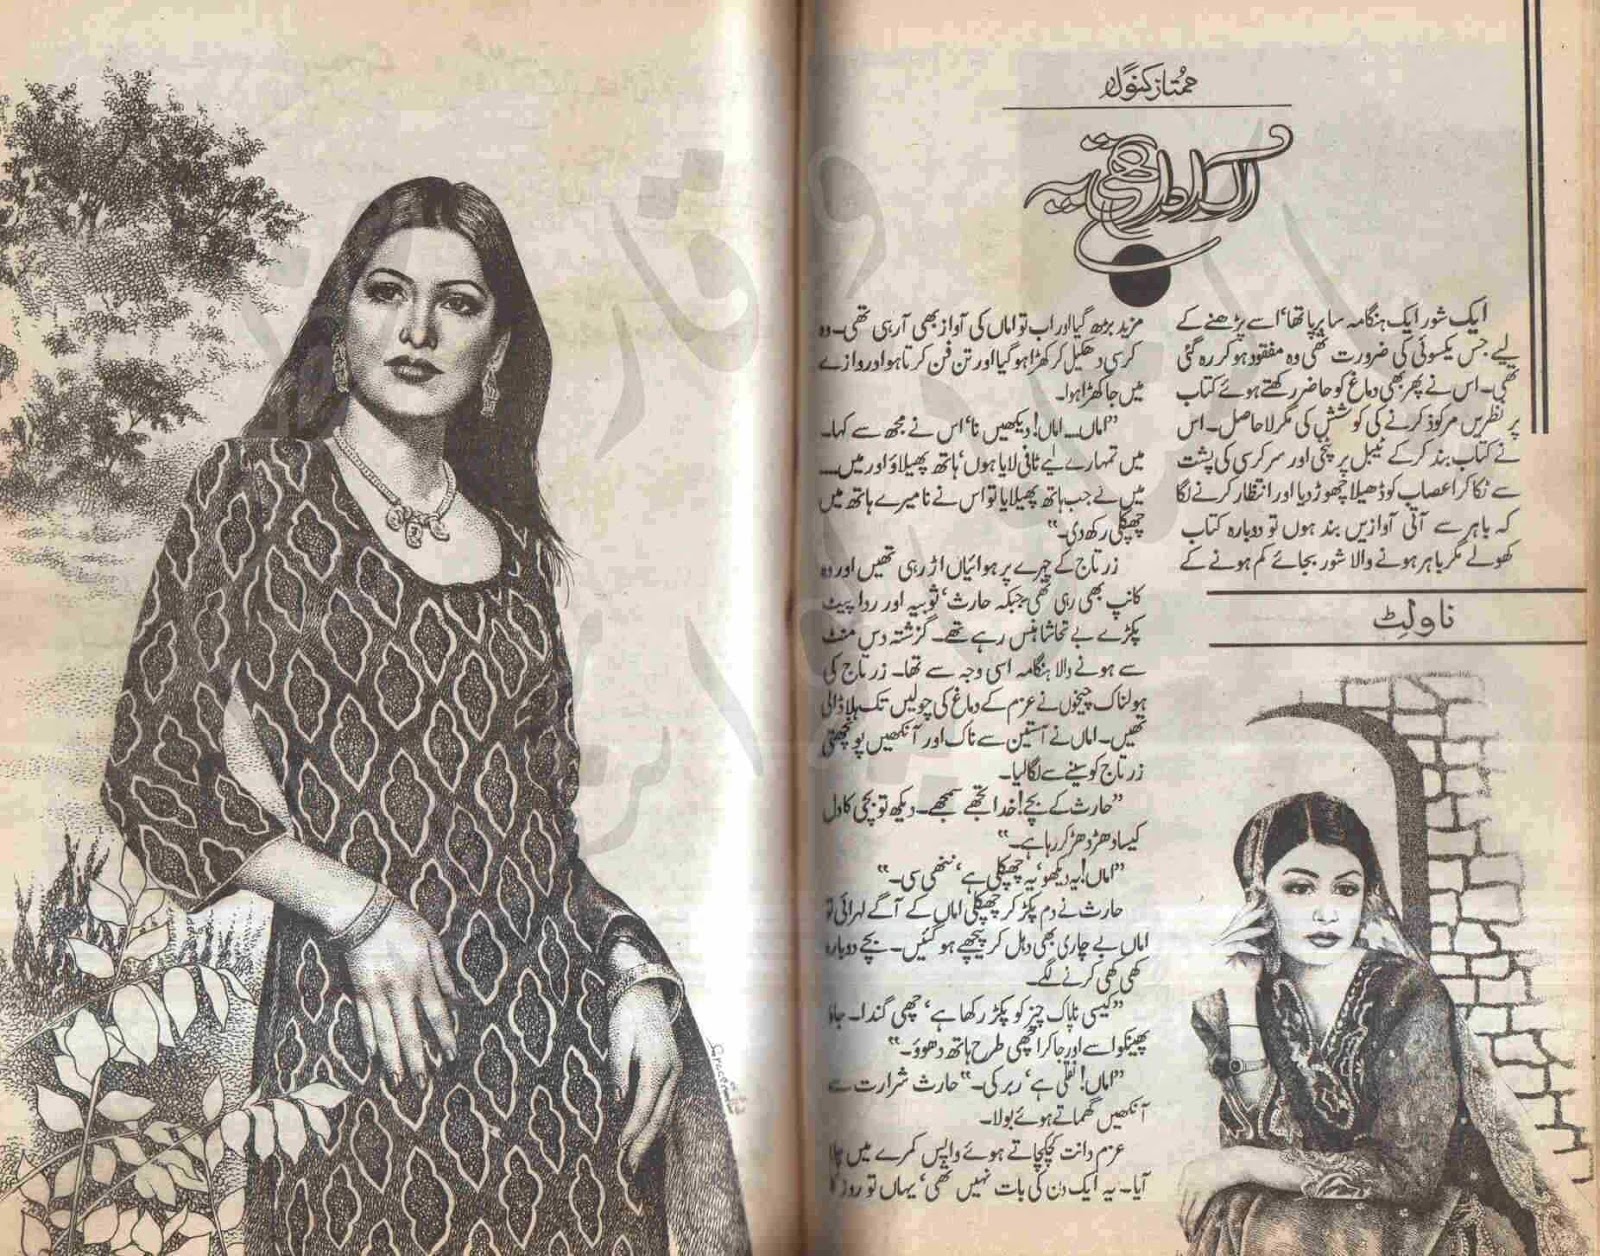 ممتاز کنول
ناولٹ
ایک شور ایک ہنگامہ سا برپا تھا‘ اسے پڑھنے کے
لیے جس یکسوئی کی ضرورت تھی وہ مفقود ہو کر رہ گئی
تھی۔ اس نے پھر بھی دماغ کو حاضر رکھتے ہوئے کتاب
پر نظریں مرکوز کرنے کی کوشش کی مگر لاحاصل۔ اس
نے کتاب بند کر کے ٹیبل پر پٹخی اور سر کرسی کی پشت
سے ٹکا کر اعصاب کو ڈھیلا چھوڑ دیا اور انتظار کرنے لگا
کہ باہر سے آتی آوازیں بند ہوں تو دوبارہ کتاب
کھولے مگر باہر ہونے والا شور بجائے کم ہونے کے
مزید بڑھ گیا اور اب تو اماں کی آواز بھی آ رہی تھی۔ وہ
کرسی دھکیل کر کھڑا ہو گیا اور تن فن کرتا ہوا دروازے
میں جا کھڑا ہوا۔
”اماں.... اماں! دیکھیں نا‘ اس نے مجھ سے کہا۔
میں تمہارے لیے ٹافی لایا ہوں‘ ہاتھ پھیلاؤ اور میں....
میں نے جب ہاتھ پھیلایا تو اس نے نا میرے ہاتھ میں
چھپکلی رکھ دی۔“
زرتاج کے چہرے پر ہوائیاں اڑ رہی تھیں اور وہ
کانپ بھی رہی تھی جبکہ حارث‘ ثوبیہ اور ردا پیٹ
پکڑے بے تحاشا ہنس رہے تھے۔ گزشتہ دس منٹ
سے ہونے والا ہنگامہ اسی وجہ سے تھا۔ زرتاج کی
ہولناک چیخوں نے عزم کے دماغ کی چولیں تک ہلا ڈالی
تھیں۔ اماں نے آستین سے ناک اور آنکھیں پونچھتی
زرتاج کو سینے سے لگا لیا۔
”حارث کے بچے! خدا تجھے سمجھے۔ دیکھ تو بچی کا دل
کیسا دھڑ دھڑ کر رہا ہے۔“
”اماں! یہ دیکھو‘ یہ چھپکلی ہے‘ ننھی سی۔“
حارث نے دم پکڑ کر چھپکلی اماں کے آگے لہرائی تو
اماں بے چاری بھی دہل کر پیچھے ہو گئیں۔ بچے دوبارہ
کھی کھی کرنے لگے۔
”کیسی ناپاک چیز کو پکڑ رکھا ہے‘ چھی گندا۔ جاؤ
پھینکو اسے اور جا کر اچھی طرح ہاتھ دھوؤ۔“
”اماں! نقلی ہے‘ ربر کی۔“ حارث شرارت سے
آنکھیں گھماتے ہوئے بولا۔
عزم دانت کچکچاتے ہوئے واپس کمرے میں چلا
آیا۔ یہ ایک دن کی بات نہیں تھی‘ یہاں تو روز کا